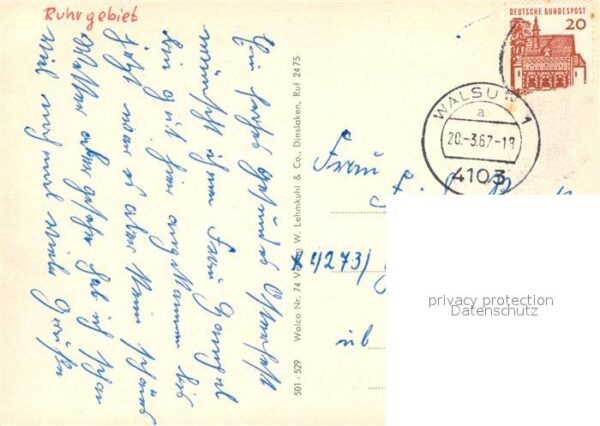 Ruhrgebiet
Ein frohes gesundes Osterfest
wünscht ihnen Frau
bin gut hier angekommen bis
jetzt war es aber kein schönes
Wetter aber gesehn hab ich schon
viel nochmal viele Grüße
501 - 529 Walco Nr. 74 Verlag W. Lehmkuhl & Co., Dinslaken, Ruf 2475
DEUTSCHE BUNDESPOST
20
WALSUM 1
a
20.-3.67-18
4103
Frau
4273
üb
privacy protection
Datenschutz